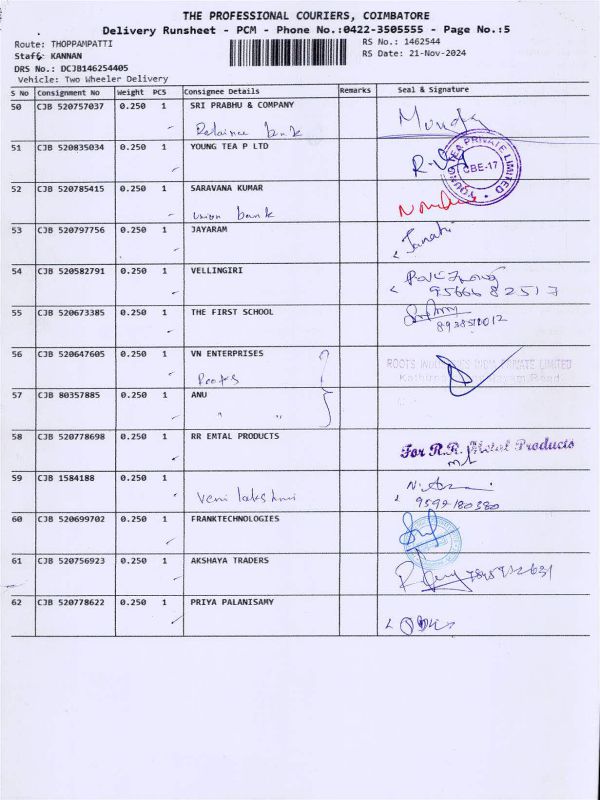 THE PROFESSIONAL COURIERS, COIMBATORE
Delivery Runsheet - PCM - Phone No.:0422-3505555 - Page No.:5
Route: THOPPAMPATTI
RS No.: 1462544
Staff: KANNAN
RS Date: 21-Nov-2024
DRS No.: DCJB146254405
Vehicle: Two Wheeler Delivery
S No Consignment No Weight PCS Consignee Details Remarks Seal & Signature
50 CJB 520757037 0.250 1 SRI PRABHU & COMPANY
Relaince bank
51 CJB 520835034 0.250 1 YOUNG TEA P LTD
YOUNG TEA PRIVATE LIMITED
CBE-17
52 CJB 520785415 0.250 1 SARAVANA KUMAR
union bank
53 CJB 520797756 0.250 1 JAYARAM
54 CJB 520582791 0.250 1 VELLINGIRI
95666 82517
55 CJB 520673385 0.250 1 THE FIRST SCHOOL
56 CJB 520647605 0.250 1 VN ENTERPRISES
Roots
ROOTS INDUSTRIES INDIA PRIVATE LIMITED
57 CJB 80357885 0.250 1 ANU
" "
58 CJB 520778698 0.250 1 RR EMTAL PRODUCTS
For R.R. Metal Products
59 CJB 1584188 0.250 1
Veni lakshmi
60 CJB 520699702 0.250 1 FRANKTECHNOLOGIES
61 CJB 520756923 0.250 1 AKSHAYA TRADERS
62 CJB 520778622 0.250 1 PRIYA PALANISAMY